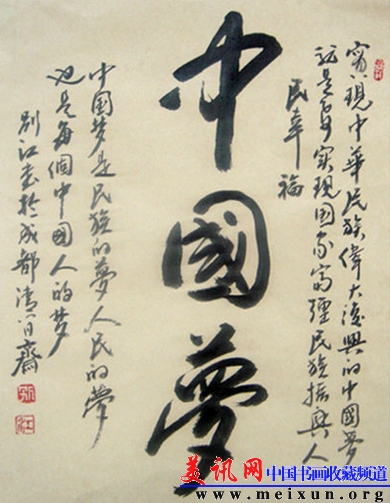 實現中華民族偉大復興的中國夢
就是要实現国家富強民族振興人
民幸福
中國夢
中国梦是民族的夢人民的夢
也是每個中国人的梦
别江書於成都清
美讯网
中国书画收藏频道
www.meixun.org